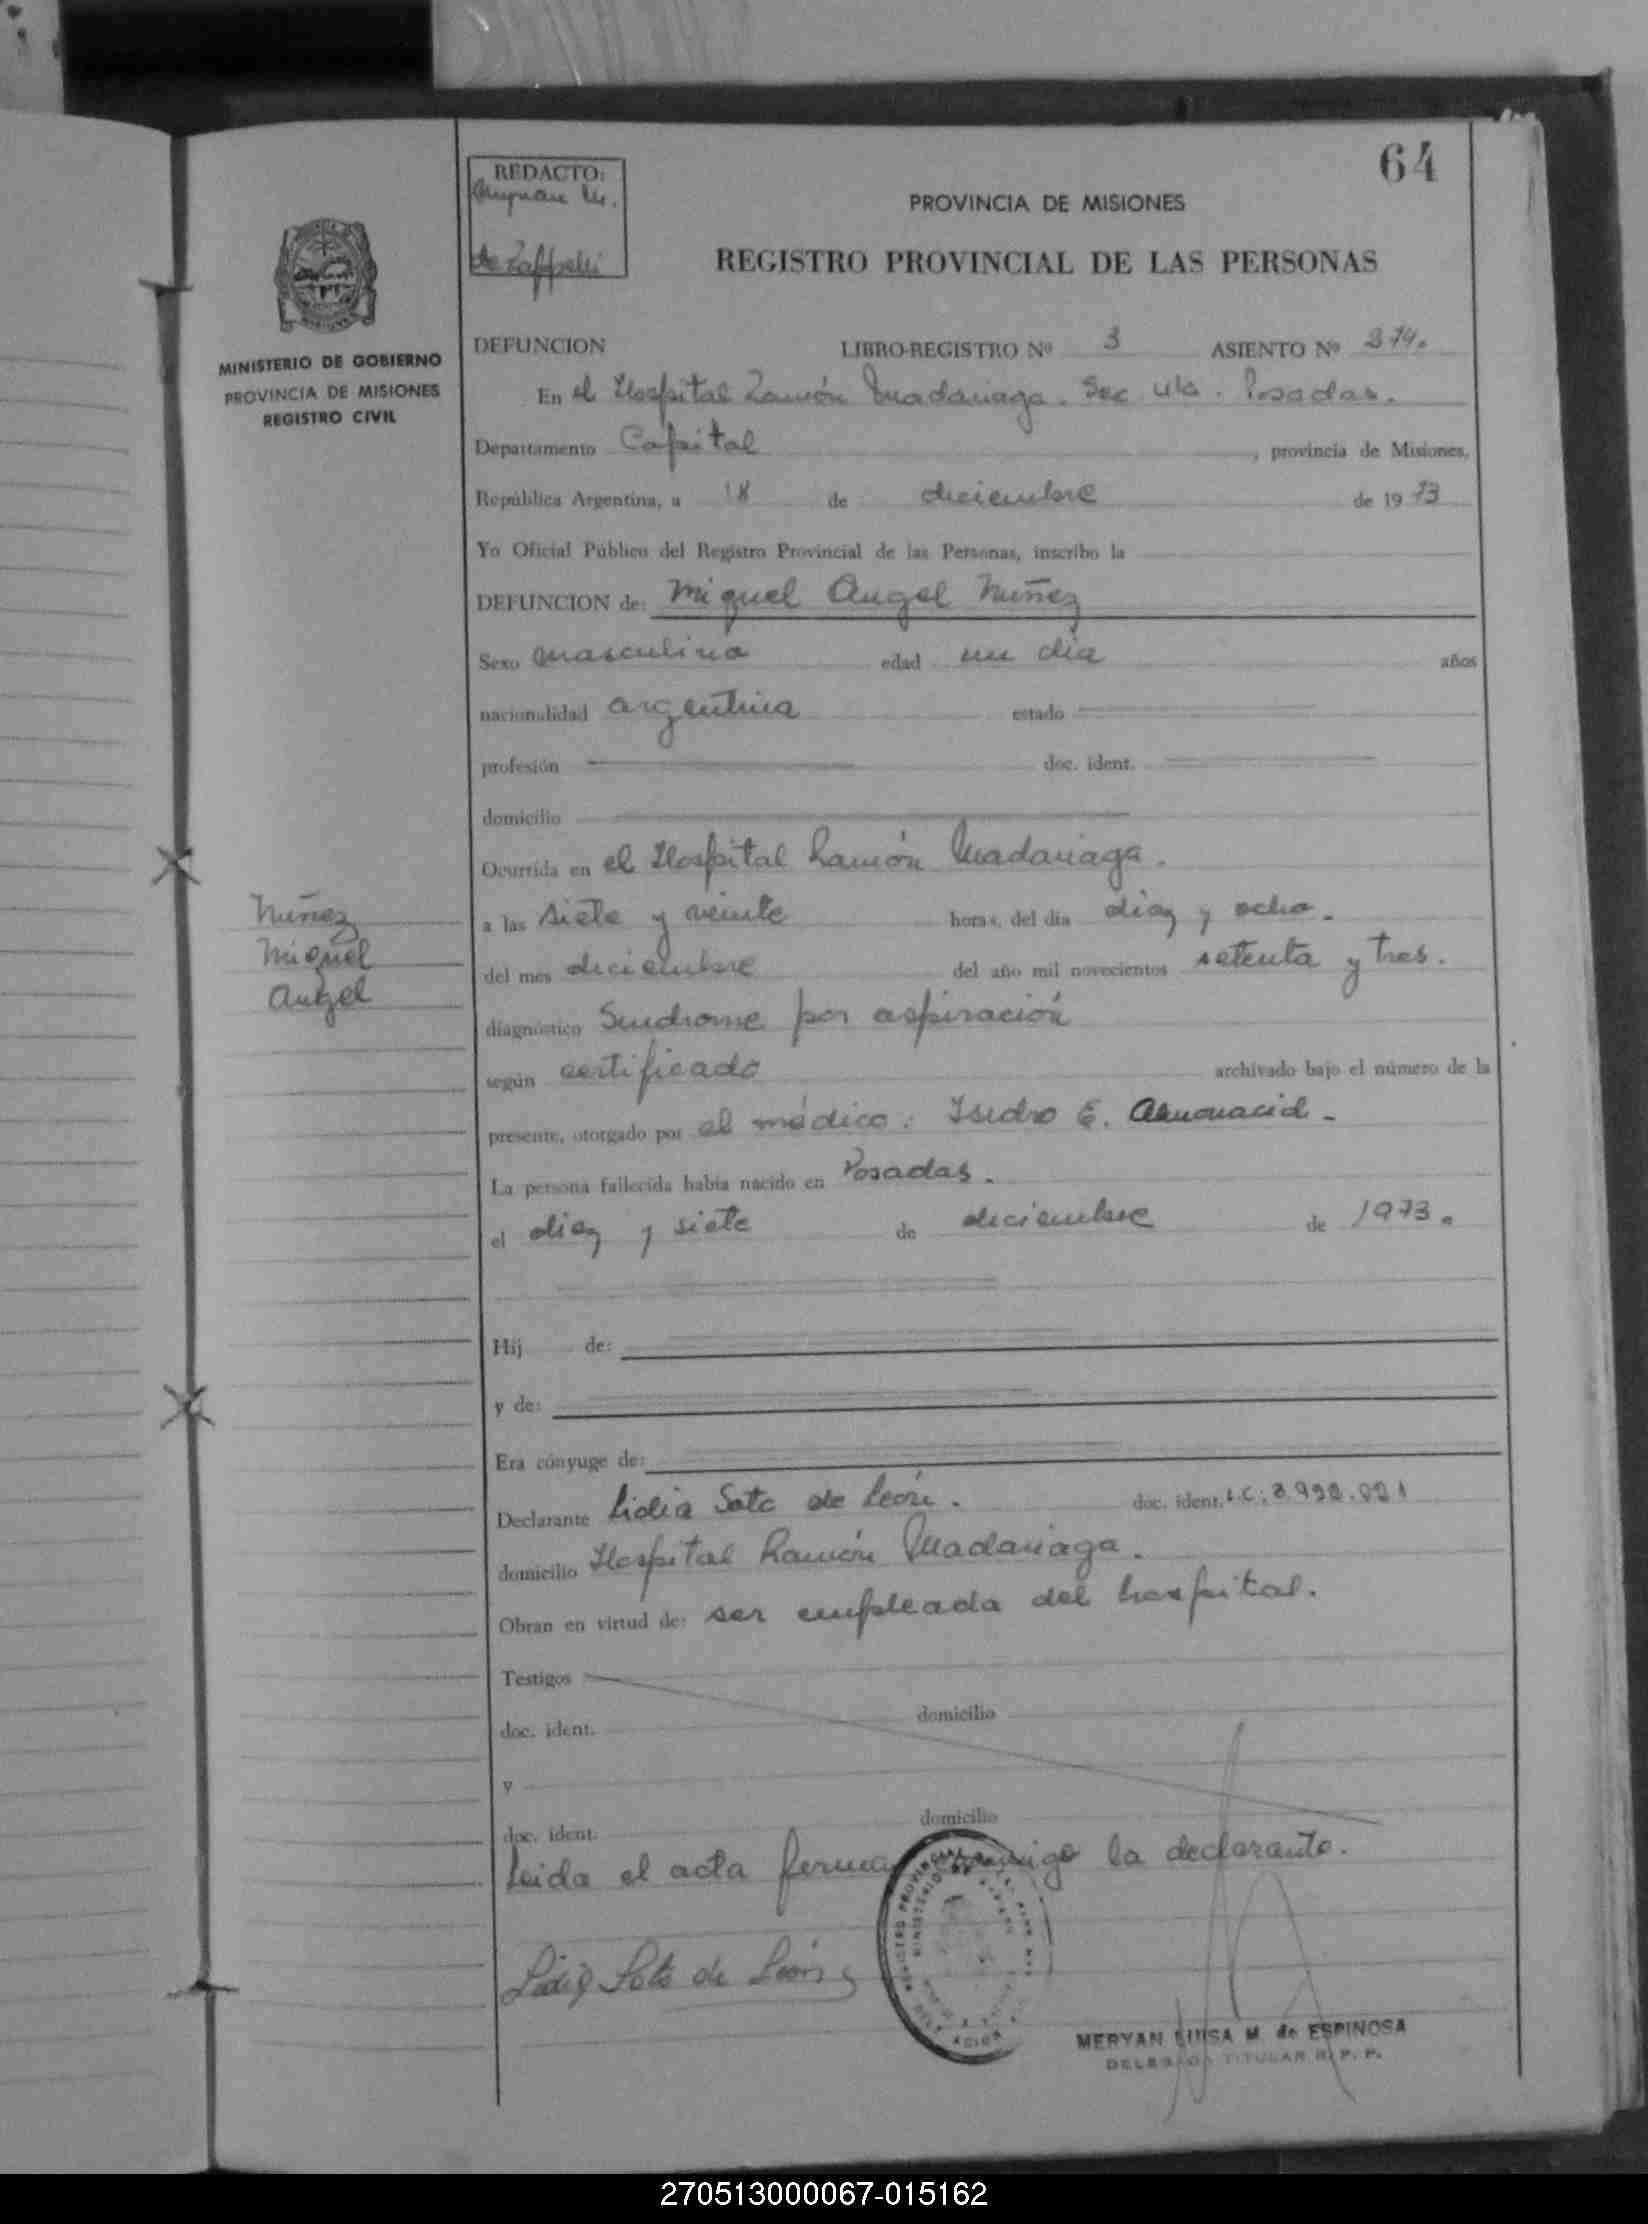 64
REDACTO:
de Zappelli
PROVINCIA DE MISIONES
REGISTRO PROVINCIAL DE LAS PERSONAS
MINISTERIO DE GOBIERNO
PROVINCIA DE MISIONES
REGISTRO CIVIL
DEFUNCION LIBRO-REGISTRO Nº 3 ASIENTO Nº 374.
En el Hospital Ramón Madariaga. Sec. Posadas.
Departamento Capital, provincia de Misiones,
República Argentina, a 18 de diciembre de 1973
Yo Oficial Público del Registro Provincial de las Personas, inscribo la
DEFUNCION de: Miguel Angel Nuñez
Sexo masculino edad un dia años
nacionalidad argentina estado
profesión doc. ident.
domicilio
Ocurrida en el Hospital Ramón Madariaga.
Nuñez
Miguel
Angel
a las siete y veinte horas, del día diez y ocho.
del mes diciembre del año mil novecientos setenta y tres.
diagnóstico Sindrome por aspiración
según certificado archivado bajo el número de la
presente, otorgado por el médico: Isidro E. Almonacid -
La persona fallecida había nacido en Posadas.
el diez y siete de diciembre de 1973.
Hij de:
y de:
Era cónyuge de:
Declarante Lidia Soto de León. doc. ident. L.C: 3.992.021
domicilio Hospital Ramón Madariaga.
Obran en virtud de: ser empleada del hospital.
Testigos
doc. ident. domicilio
y
doc. ident. domicilio
Leida el acta firma conmigo la declarante.
Lidia Soto de León
MERYAN LUISA M. de ESPINOSA
DELEGADA TITULAR R. P. P.
270513000067-015162